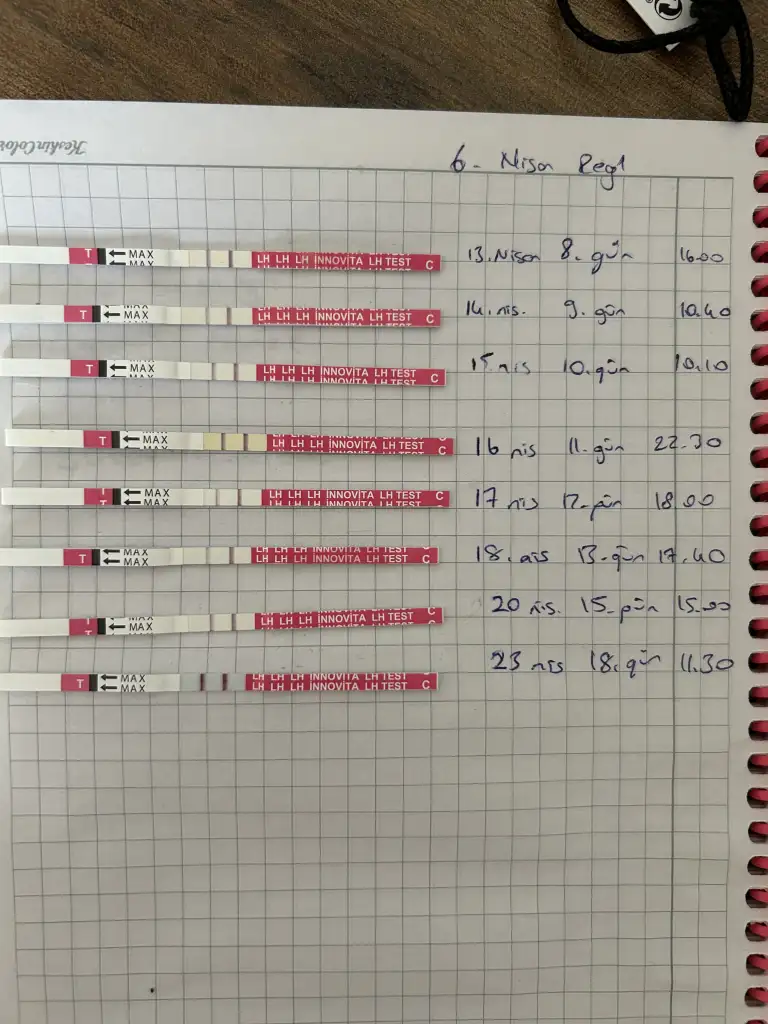 KeskinColor
6- Nisan Regl
T ← MAX ← MAX LH LH LH İNNOVİTA LH TEST C 13.Nisan 8. gün 16.00
T MAX ← MAX LH LH LH İNNOVİTA LH TEST C 14. nis. 9. gün 10.40
T ← MAX LH LH LH İNNOVİTA LH TEST C 15. nis 10. gün 10.10
T ← MAX LH LH LH İNNOVİTA LH TEST C 16 nis 11. gün 22.30
T ← MAX ← MAX LH LH LH İNNOVİTA LH TEST C 17 nis 12. gün 18.00
T ← MAX ← MAX LH LH LH İNNOVİTA LH TEST C 18. nis 13. gün 17.40
T ← MAX ← MAX LH LH LH İNNOVİTA LH TEST C 20 nis. 15. gün 15.00
T ← MAX ← MAX LH LH LH İNNOVİTA LH TEST C 23 nis 18. gün 11.30